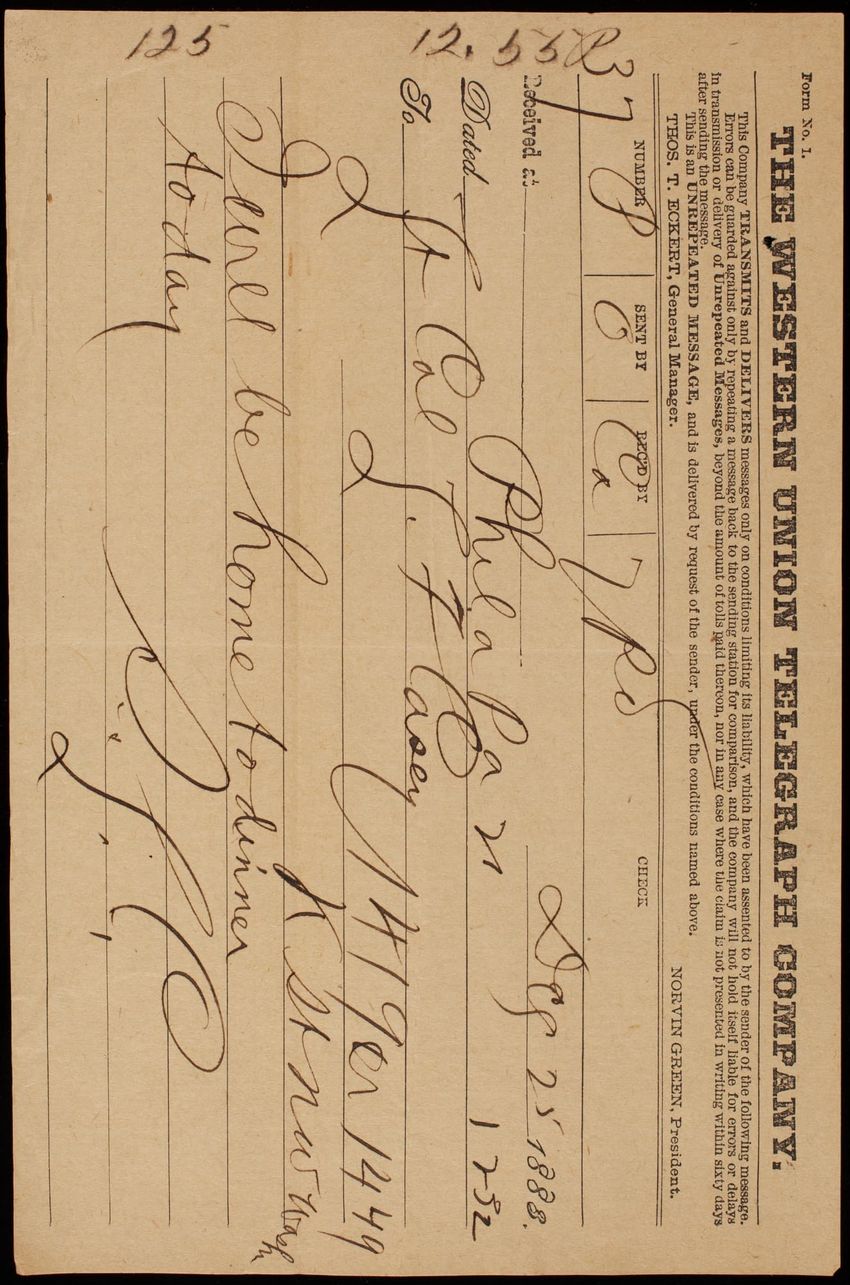 Form No. 1.
THE WESTERN UNION TELEGRAPH COMPANY.
This Company TRANSMITS and DELIVERS messages only on conditions limiting its liability, which have been assented to by the sender of the following message.
Errors can be guarded against only by repeating a message back to the sending station for comparison, and the company will not hold itself liable for errors or delays
in transmission or delivery of Unrepeated Messages, beyond the amount of tolls paid thereon, nor in any case where the claim is not presented in writing within sixty days
after sending the message.
This is an UNREPEATED MESSAGE, and is delivered by request of the sender, under the conditions named above.
THOS. T. ECKERT, General Manager. NORVIN GREEN, President.
NUMBER SENT BY REC'D BY CHECK
37 P O Ca 7 Pd
Received at Dec 25 1888.
12.55 P
Dated Phila Pa n 1252
To Lt Col T. F. Casey
1419 or 1449
K St NW Wash
I will be home to dinner
to day
125